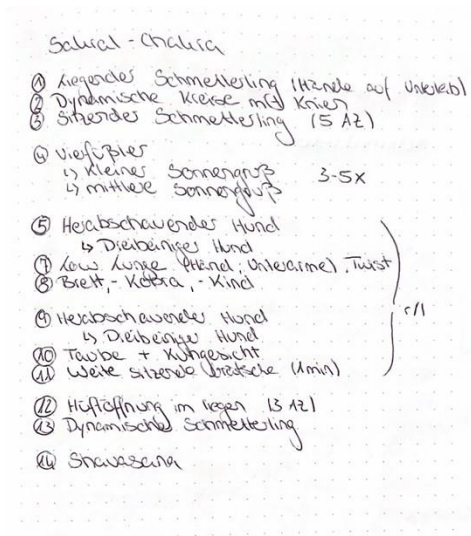 Sakral-Chakra
① Liegender Schmetterling (Hände auf Unterleib)
② Dynamische Kreise mit Knien
③ Sitzender Schmetterling (5 AZ)
④ Vierfüßler
↳ Kleiner Sonnengruß 3-5x
↳ mittlere Sonnengruß
⑤ Herabschauender Hund
↳ Dreibeiniger Hund
⑦ Low Lunge (Hand, Unterarme), Twist
⑧ Brett, - Kobra, - Kind
r/l
⑨ Herabschauender Hund
↳ Dreibeiniger Hund
⑩ Taube + Kuhgesicht
⑪ Weite sitzende Grätsche (1min)
⑫ Hüftöffnung im liegen (3 AZ)
⑬ Dynamischer Schmetterling
⑭ Shavasana